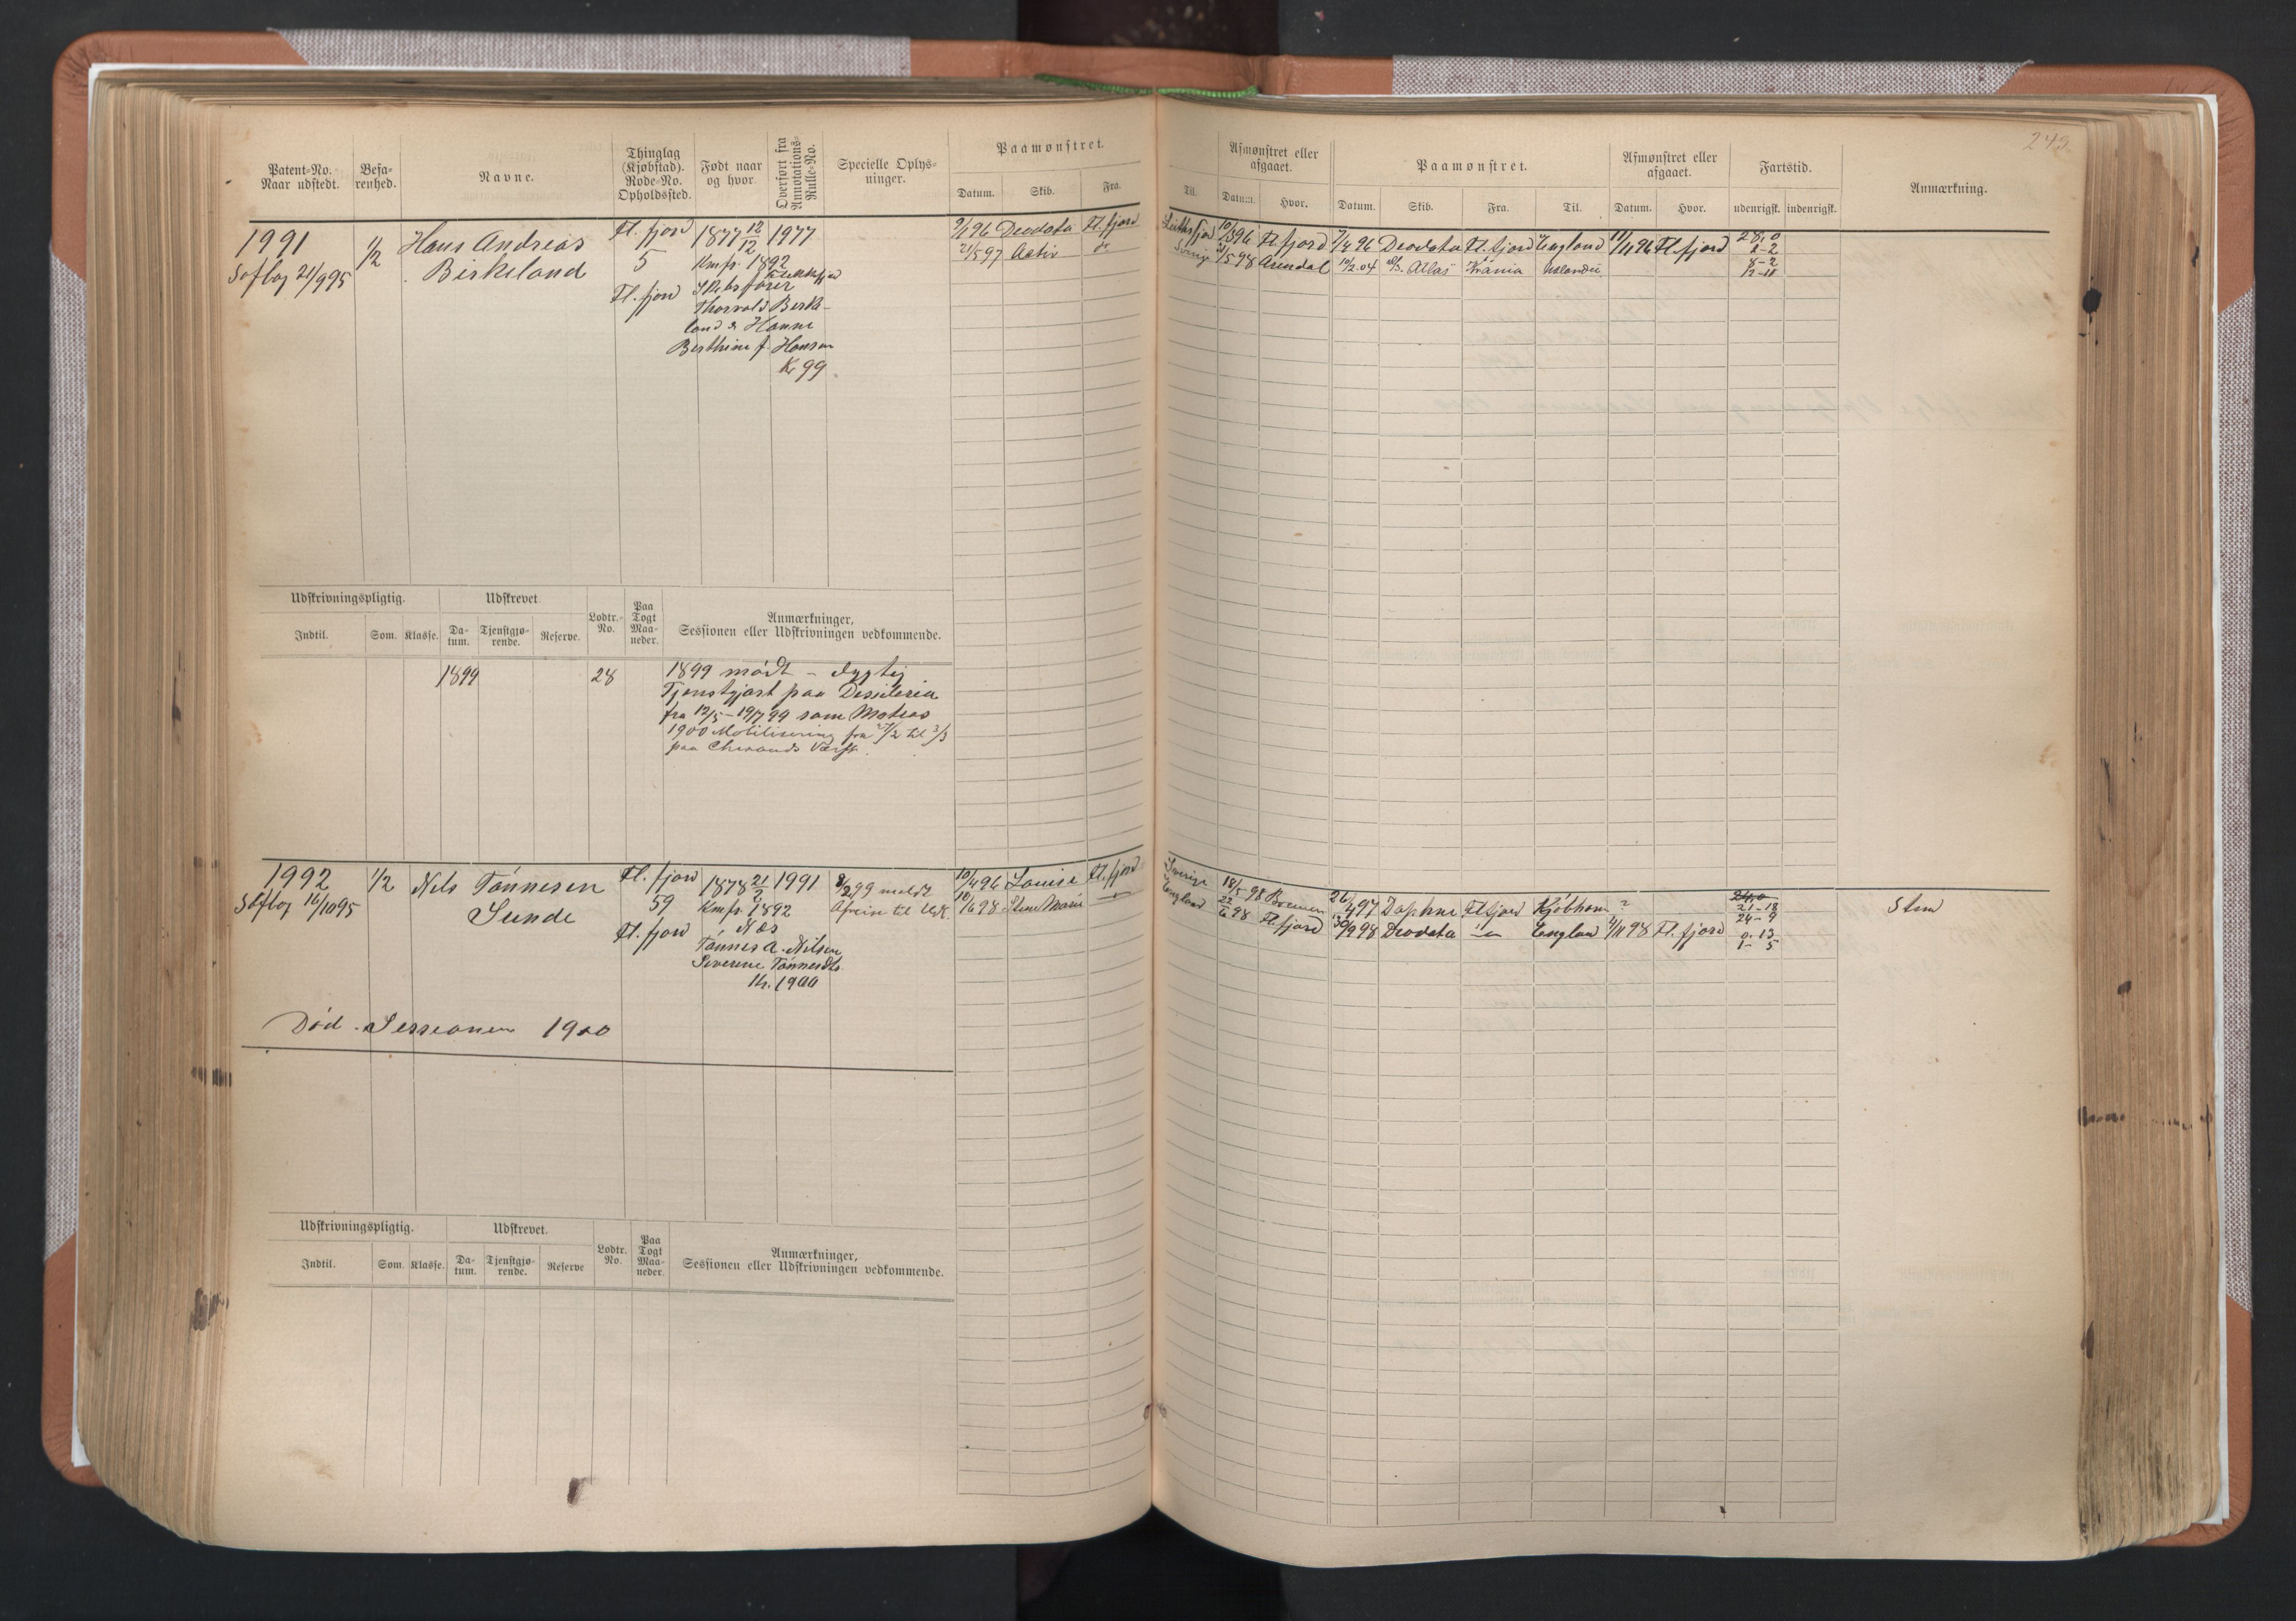 Patent-No.
Naar udstedt.
Befa-
renhed.
Navne.
Thinglag
(Kjøbstad).
Rode-No.
Opholdssted.
Født naar
og hvor.
Overført fra
Annotations-
Rulle-No.
Specielle Oplys-
ninger.
Paamønstret.
Datum.
Skib.
Fra.
1991
Søflbog 21/9 95
1/2
Hans Andreas
Birkeland
Fl. fjord
5
Fl. fjord
1877 12/12
Kmfr. 1892
Skibsfører
Thorvald Birke-
land & Hanne
Berthine f. Hansen
Kr 99
1977
9/1 96 Deodata Fl. fjord
21/5 97 Activ do
Udskrivningspligtig.
Udskrevet.
Lodtr.-
No.
Paa
Togt
Maa-
neder.
Anmærkninger,
Sessionen eller Udskrivningen vedkommende.
Indtil.
Som.
Klasse.
Da-
tum.
Tjenstgjø-
rende.
Reserve.
1899
28
1899 mødt - dygtig
Tjenstgjort paa Desideria
fra 12/5 - 19/7 99 som Matros
1900 Mobilisering fra 27/2 til 3/3
paa Chrsands Værft.
1992
Søflbog 16/10 95
1/2
Nils Tønnesen
Sunde
Fl. fjord
59
Fl. fjord
1878 21/2
Kmfr. 1892
Næs
Tønnes A. Nilsen
Severine Tønnesdtr.
Kr. 1900
1991
8/2 99 meldt
Afreise til Udl.
10/4 96 Louise Fl. fjord
10/6 98 Stine Marie
Død. Sessionen 1900
Udskrivningspligtig.
Udskrevet.
Lodtr.
No.
Paa
Togt
Maa-
neder.
Anmærkninger,
Sessionen eller Udskrivningen vedkommende.
Indtil.
Som.
Klasse.
Da-
tum.
Tjenstgjø-
rende.
Reserve
243
Til.
Afmønstret eller
afgaaet.
Datum.
Hvor.
Paamønstret.
Datum.
Skib.
Fra.
Til.
Afmønstret eller
afgaaet.
Datum.
Hvor.
Fartstid.
udenrigsk.
indenrigsk.
Anmærkning.
10/3 96 Fl fjord 7/4 96 Deodata Fl. fjord England 11/11 96 Fl. fjord
21/5 98 Arendal 10/2 04 Atlas Udlandet
28, 0
8-2
12-11
Sverige 18/5 98 Bremen 26/4 97 Daphne Fl. fjord Kjøbhavn ?
England 22/6 98 Fl. fjord Deodata England 98 Fl. fjord
21-18
24-9
0. 13
1- 5
Stm